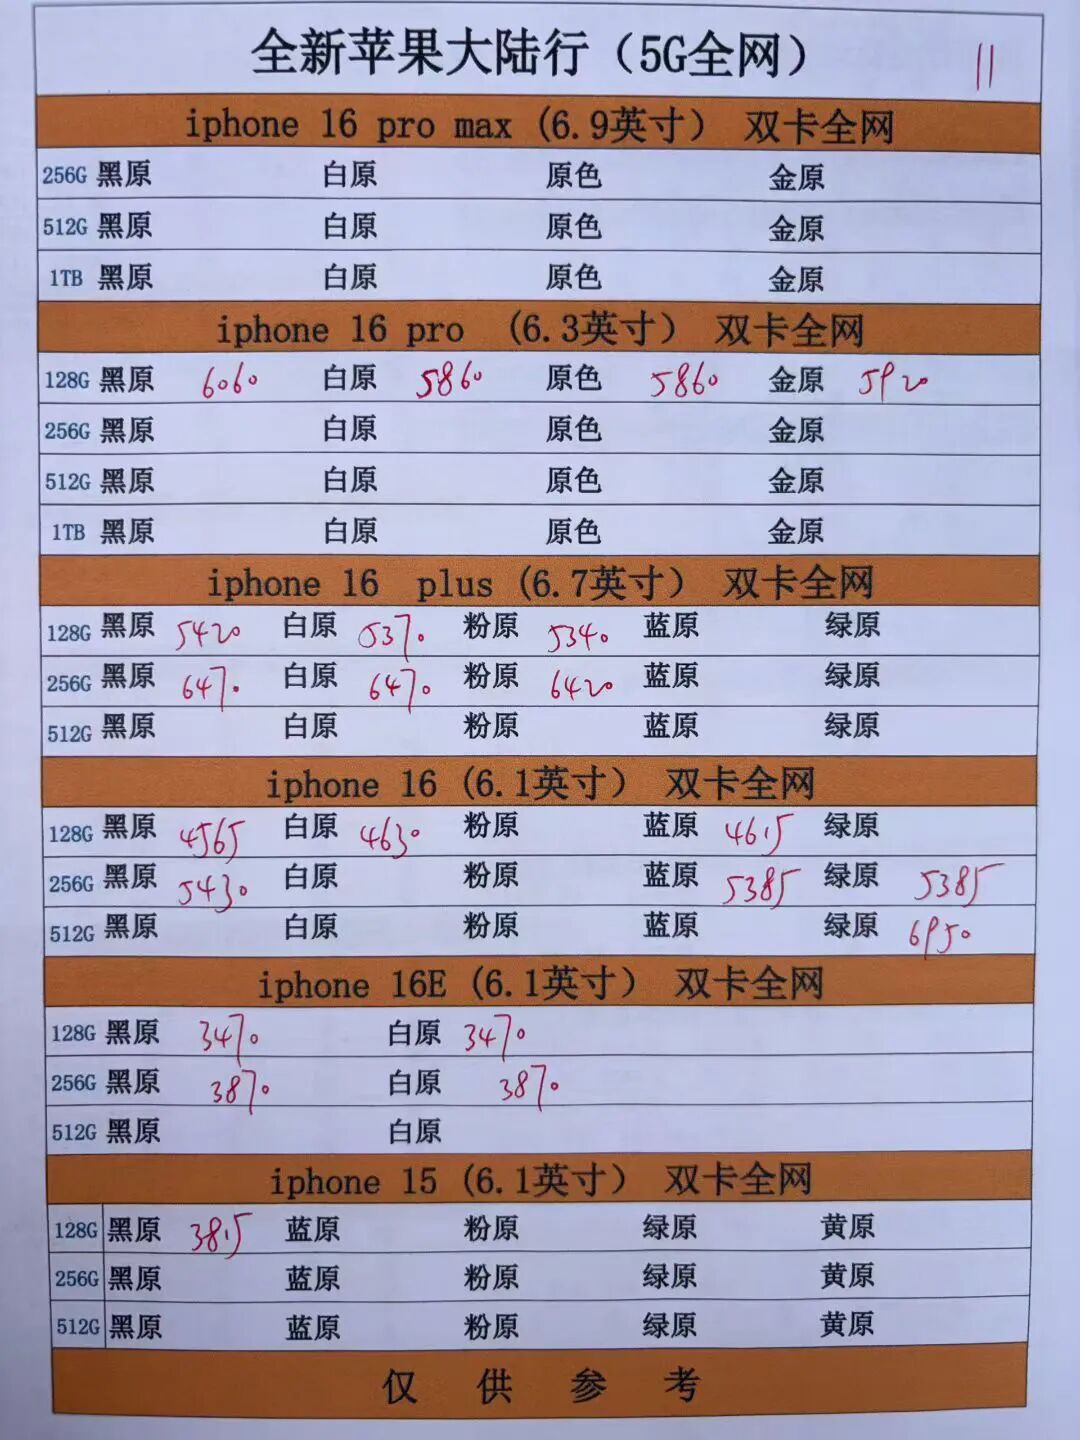 全新苹果大陆行（5G全网） 11
iphone 16 pro max (6.9英寸） 双卡全网
256G 黑原 白原 原色 金原
512G 黑原 白原 原色 金原
1TB 黑原 白原 原色 金原
iphone 16 pro （6.3英寸） 双卡全网
128G 黑原 6060 白原 5860 原色 5860 金原 5920
256G 黑原 白原 原色 金原
512G 黑原 白原 原色 金原
1TB 黑原 白原 原色 金原
iphone 16 plus (6.7英寸） 双卡全网
128G 黑原 5420 白原 5370 粉原 5340 蓝原 绿原
256G 黑原 6470 白原 6470 粉原 6420 蓝原 绿原
512G 黑原 白原 粉原 蓝原 绿原
iphone 16 (6.1英寸） 双卡全网
128G 黑原 4565 白原 4630 粉原 蓝原 4615 绿原
256G 黑原 5430 白原 粉原 蓝原 5385 绿原 5385
512G 黑原 白原 粉原 蓝原 绿原 6950
iphone 16E (6.1英寸） 双卡全网
128G 黑原 3470 白原 3470
256G 黑原 3870 白原 3870
512G 黑原 白原
iphone 15 (6.1英寸） 双卡全网
128G 黑原 3815 蓝原 粉原 绿原 黄原
256G 黑原 蓝原 粉原 绿原 黄原
512G 黑原 蓝原 粉原 绿原 黄原
仅供参考